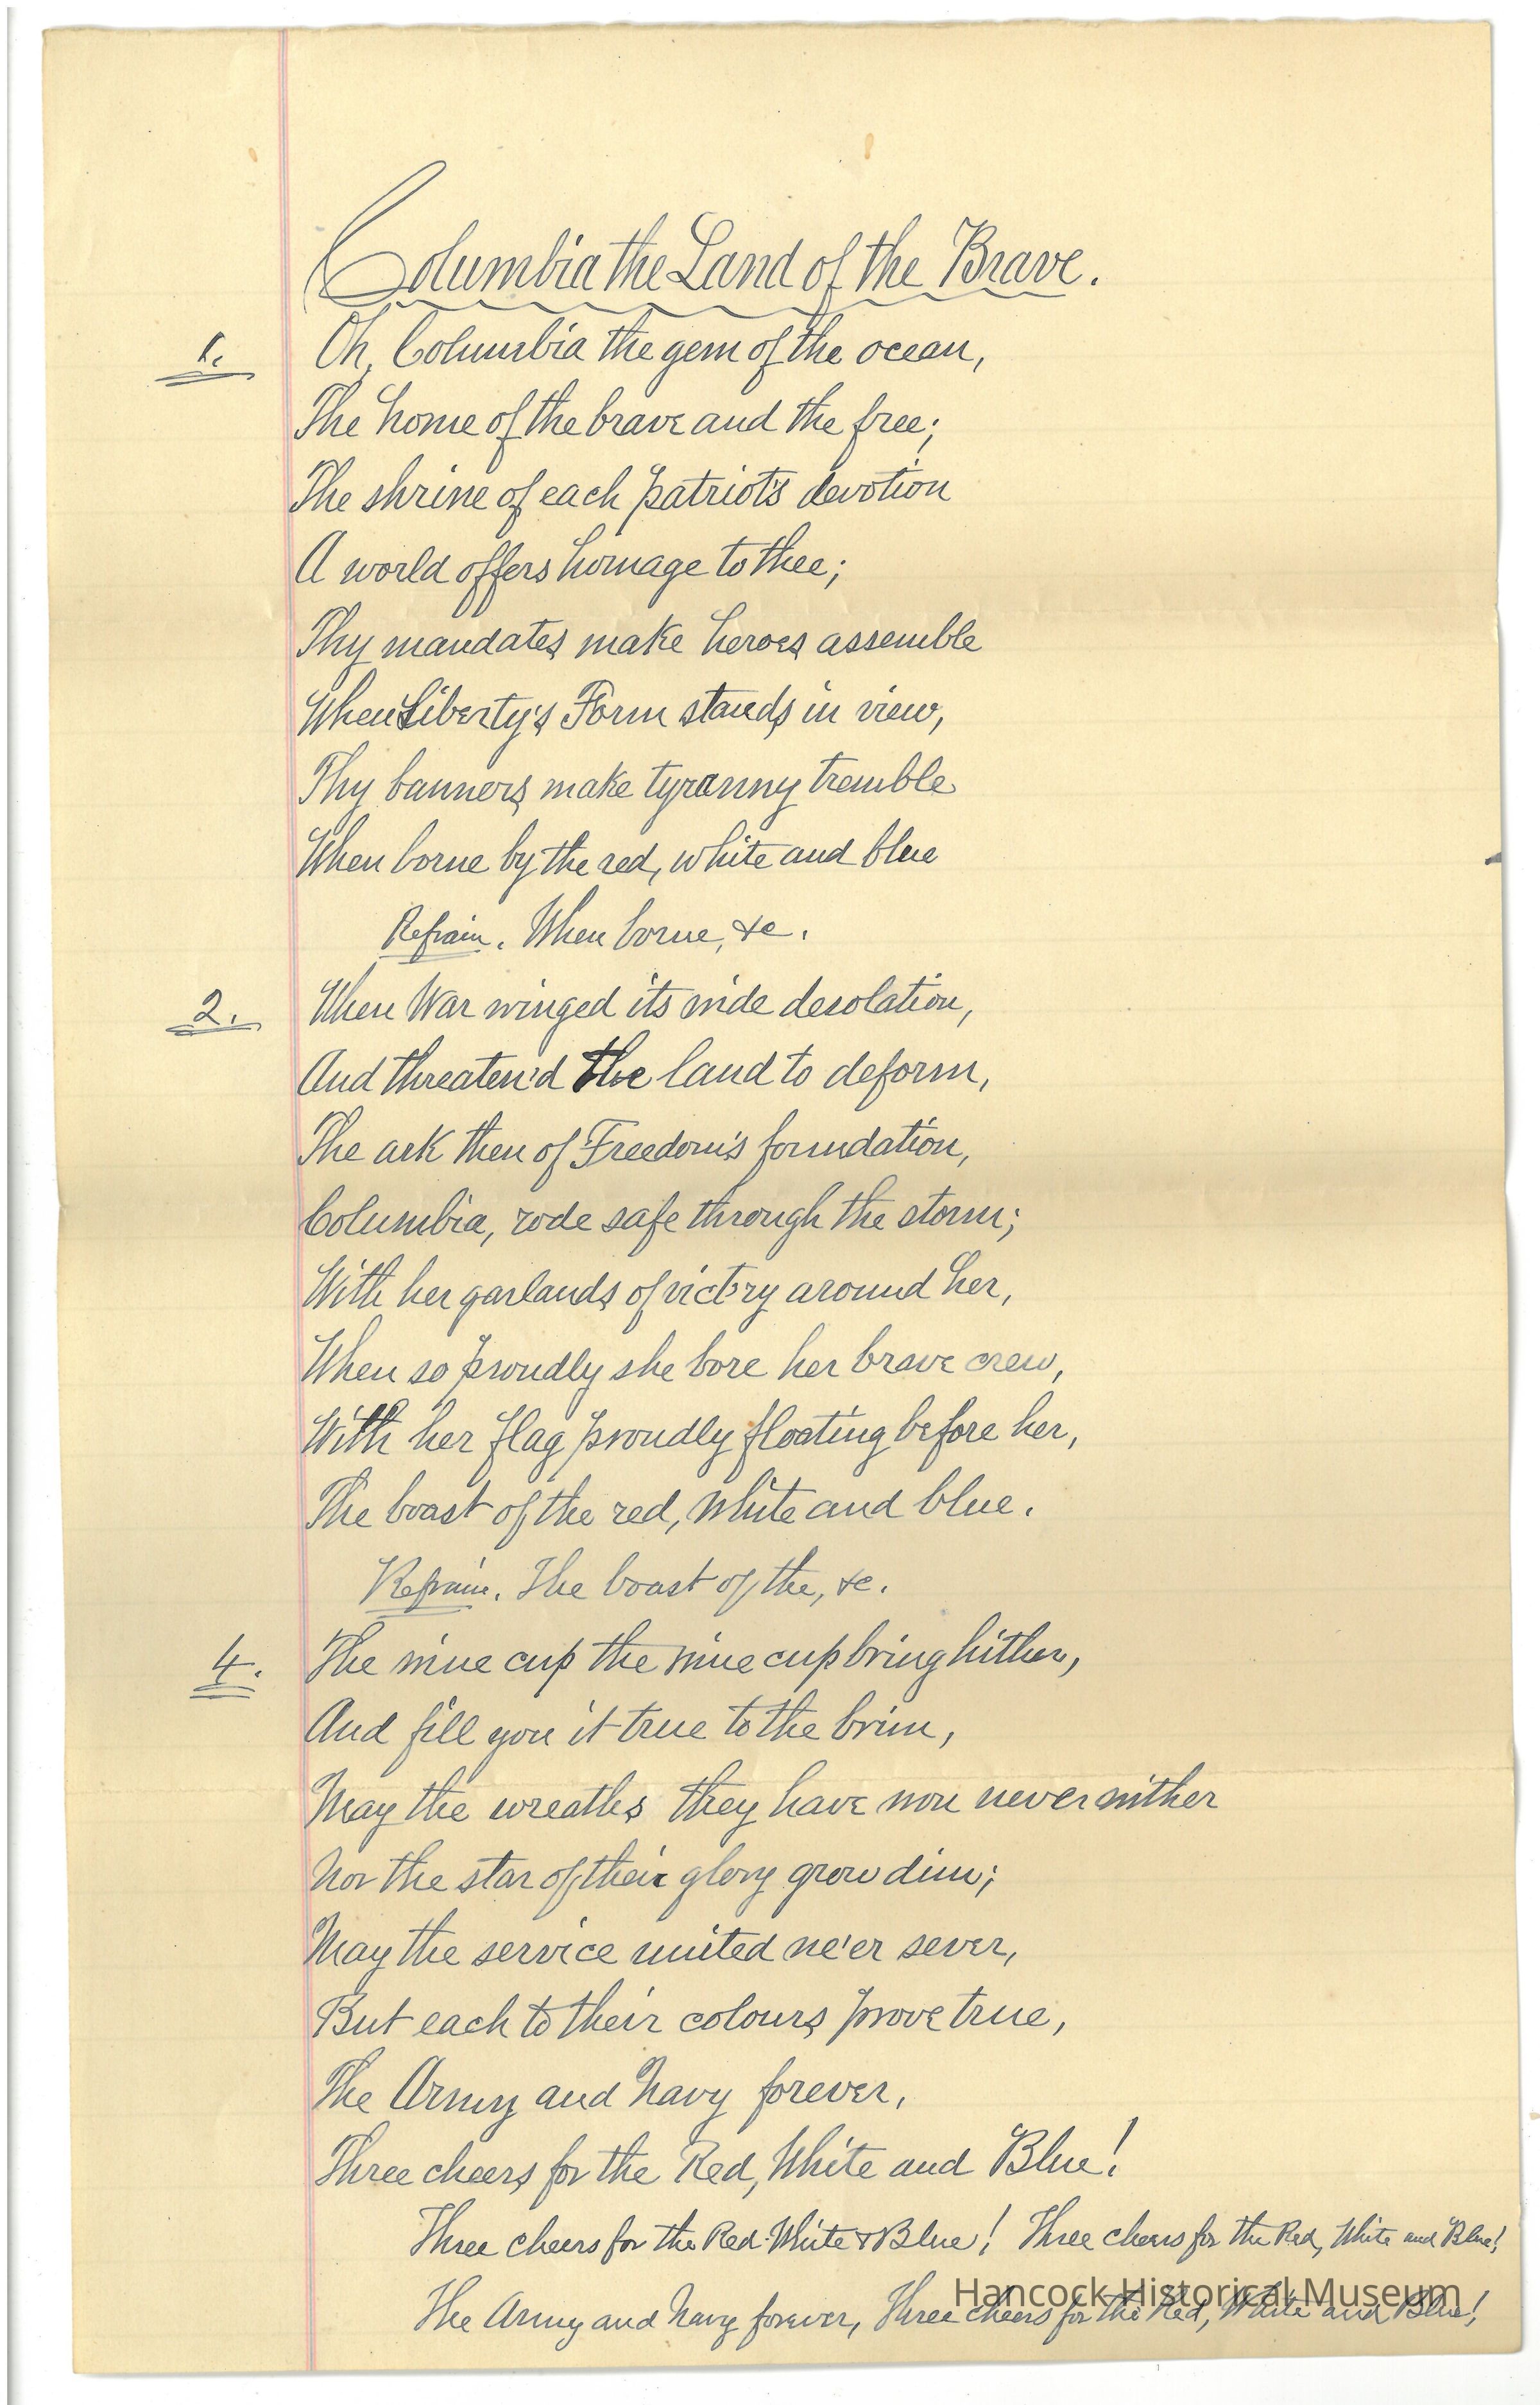 Columbia the Land of the Brave.
1. Oh, Columbia the gem of the ocean,
The home of the brave and the free;
The shrine of each patriot's devotion
A world offers homage to thee;
Thy mandates make heroes assemble
When Liberty's Form stands in view,
Thy banners make tyranny tremble
When borne by the red, white and blue
Refrain. When borne, &c.
2. When War winged its wide desolation,
And threaten'd the land to deform,
The ark then of Freedom's foundation,
Columbia, rode safe through the storm;
With her garlands of victory around her,
When so proudly she bore her brave crew,
With her flag proudly floating before her,
The boast of the red, white and blue.
Refrain. The boast of the, &c.
4. The wine cup the wine cup bring hither,
And fill you it true to the brim,
May the wreaths they have won never wither
Nor the star of their glory grow dim;
May the service united ne'er sever,
But each to their colours prove true,
The Army and Navy forever,
Three cheers for the Red, White and Blue!
Three cheers for the Red White & Blue! Three cheers for the Red, White and Blue!
The Army and Navy forever, Three cheers for the Red, White and Blue!
Hancock Historical Museum